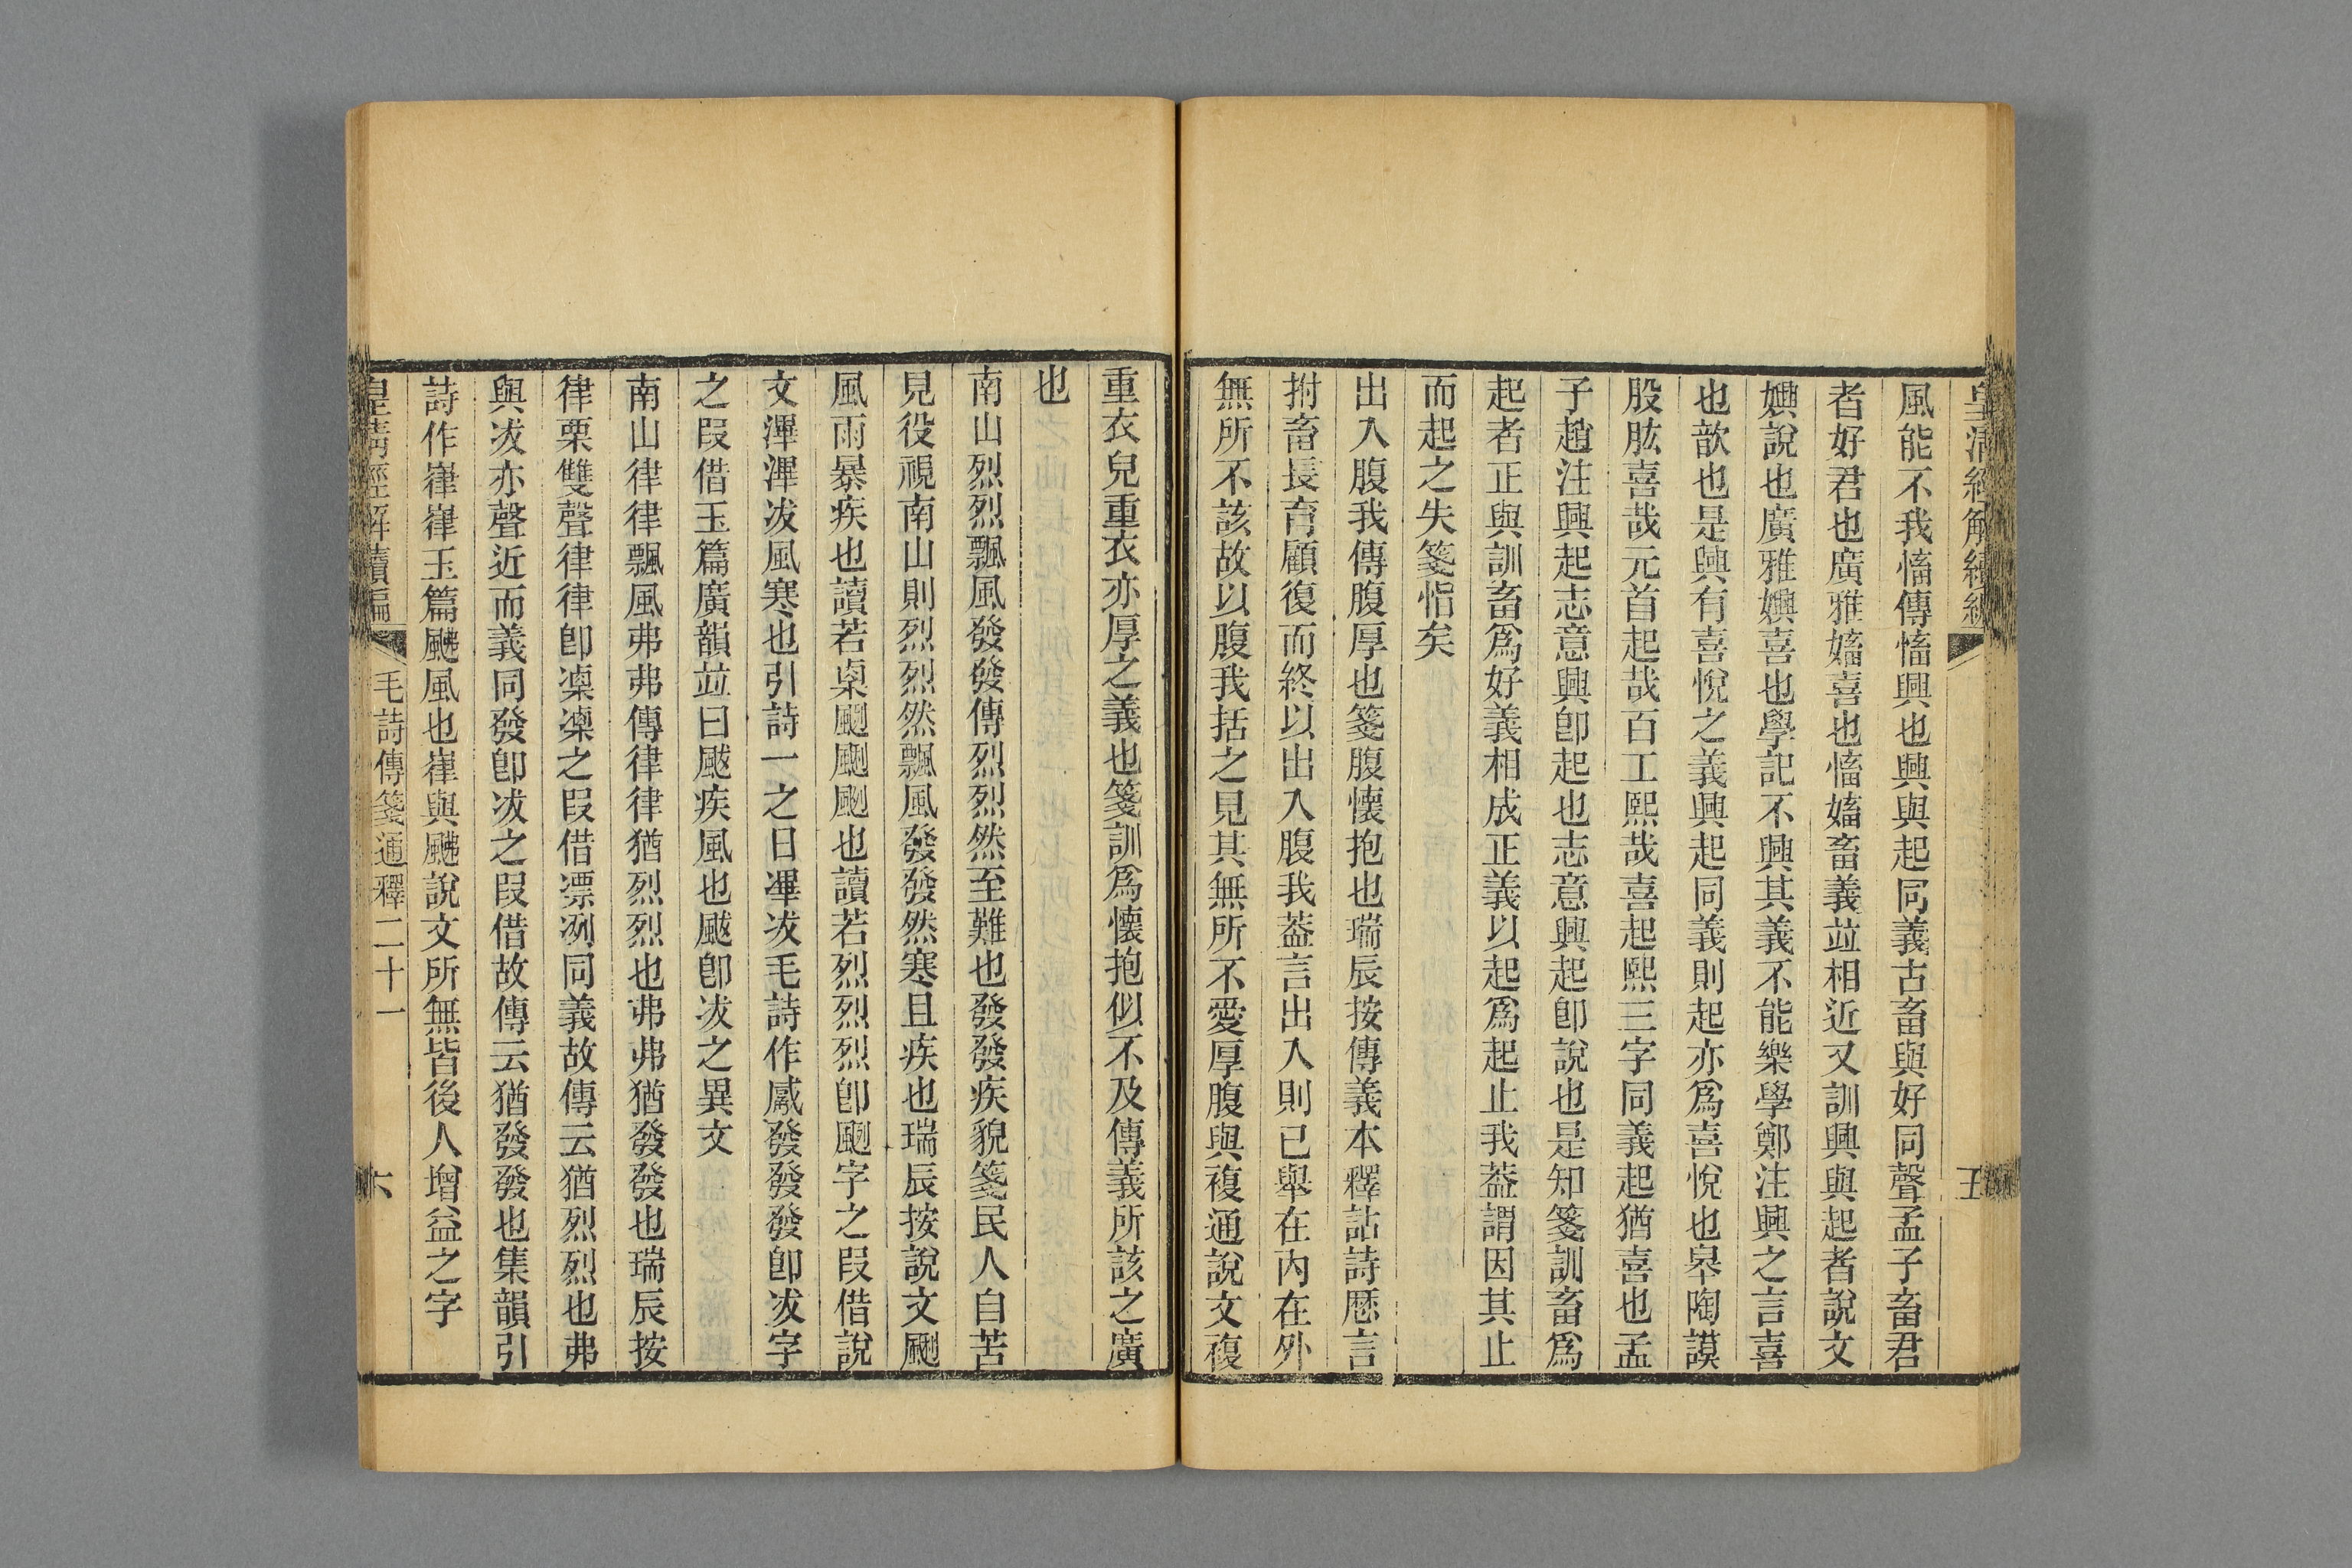 皇清經解續編
五
風能不我慉傳慉興也興與起同義古畜與好同聲孟子畜君
者好君也廣雅媨喜也慉媨畜義竝相近又訓興與起者說文
嬹說也廣雅嬹喜也學記不興其義不能樂學鄭注興之言喜
也歆也是興有喜悅之義興起同義則起亦爲喜悅也皋陶謨
股肱喜哉元首起哉百工熙哉喜起熙三字同義起猶喜也孟
子趙注興起志意興卽起也志意興起卽說也是知箋訓畜爲
起者正與訓畜爲好義相成正義以起爲起止我葢謂因其止
而起之失箋恉矣
出入腹我傳腹厚也箋腹懷抱也瑞辰按傳義本釋詁詩歷言
拊畜長育顧復而終以出入腹我葢言出入則已舉在內在外
無所不該故以腹我括之見其無所不愛厚腹與複通說文複
重衣皃重衣亦厚之義也箋訓爲懷抱似不及傳義所該之廣
也
南山烈烈飄風發發傳烈烈然至難也發發疾貌箋民人自苦
見役視南山則烈烈然飄風發發然寒且疾也瑞辰按說文颲
風雨暴疾也讀若㮚颲颲颲也讀若烈烈烈卽颲字之叚借說
文滭滭冹風寒也引詩一之日滭冹毛詩作觱發發發卽冹字
之叚借玉篇廣韻竝曰颰疾風也颰卽冹之異文
南山律律飄風弗弗傳律律猶烈烈也弗弗猶發發也瑞辰按
律栗雙聲律律卽凓凓之叚借凓冽同義故傳云猶烈烈也弗
與冹亦聲近而義同發卽冹之叚借故傳云猶發發也集韻引
詩作嵂嵂玉篇颷風也嵂與颷說文所無皆後人增益之字
皇清經解續編
毛詩傳箋通釋二十一
六